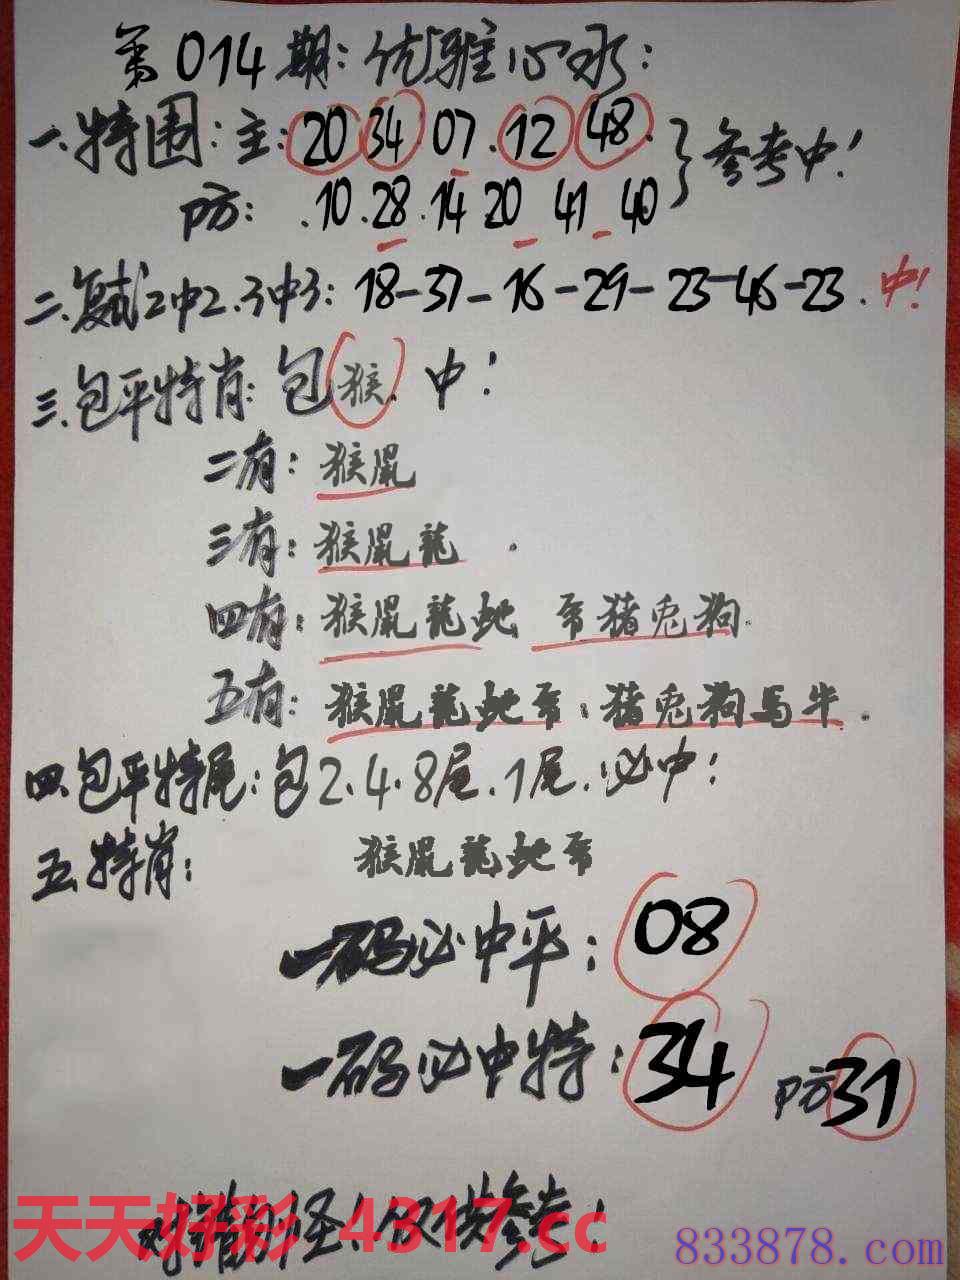 第014期:优雅心水:
一.特围:主:20 34 07.12 48.}参考中!
防:.10.28.14 20 41 40
二.复试2中2.3中3:18-37-16-29-23-46-23.中!
三.包平特肖:包猴.中!
二有:猴鼠
三有:猴鼠龍.
四有:猴鼠龍蛇 帝猪兔狗.
五有:猴鼠龍蛇帝.猪兔狗馬牛.
四.包平特尾:包2.4.8尾.1尾.必中!
五.特肖: 猴鼠龍蛇帝
一码必中平:08
一码必中特:34 防31
仅供参考!
天天好彩 4317.cc
833878.com